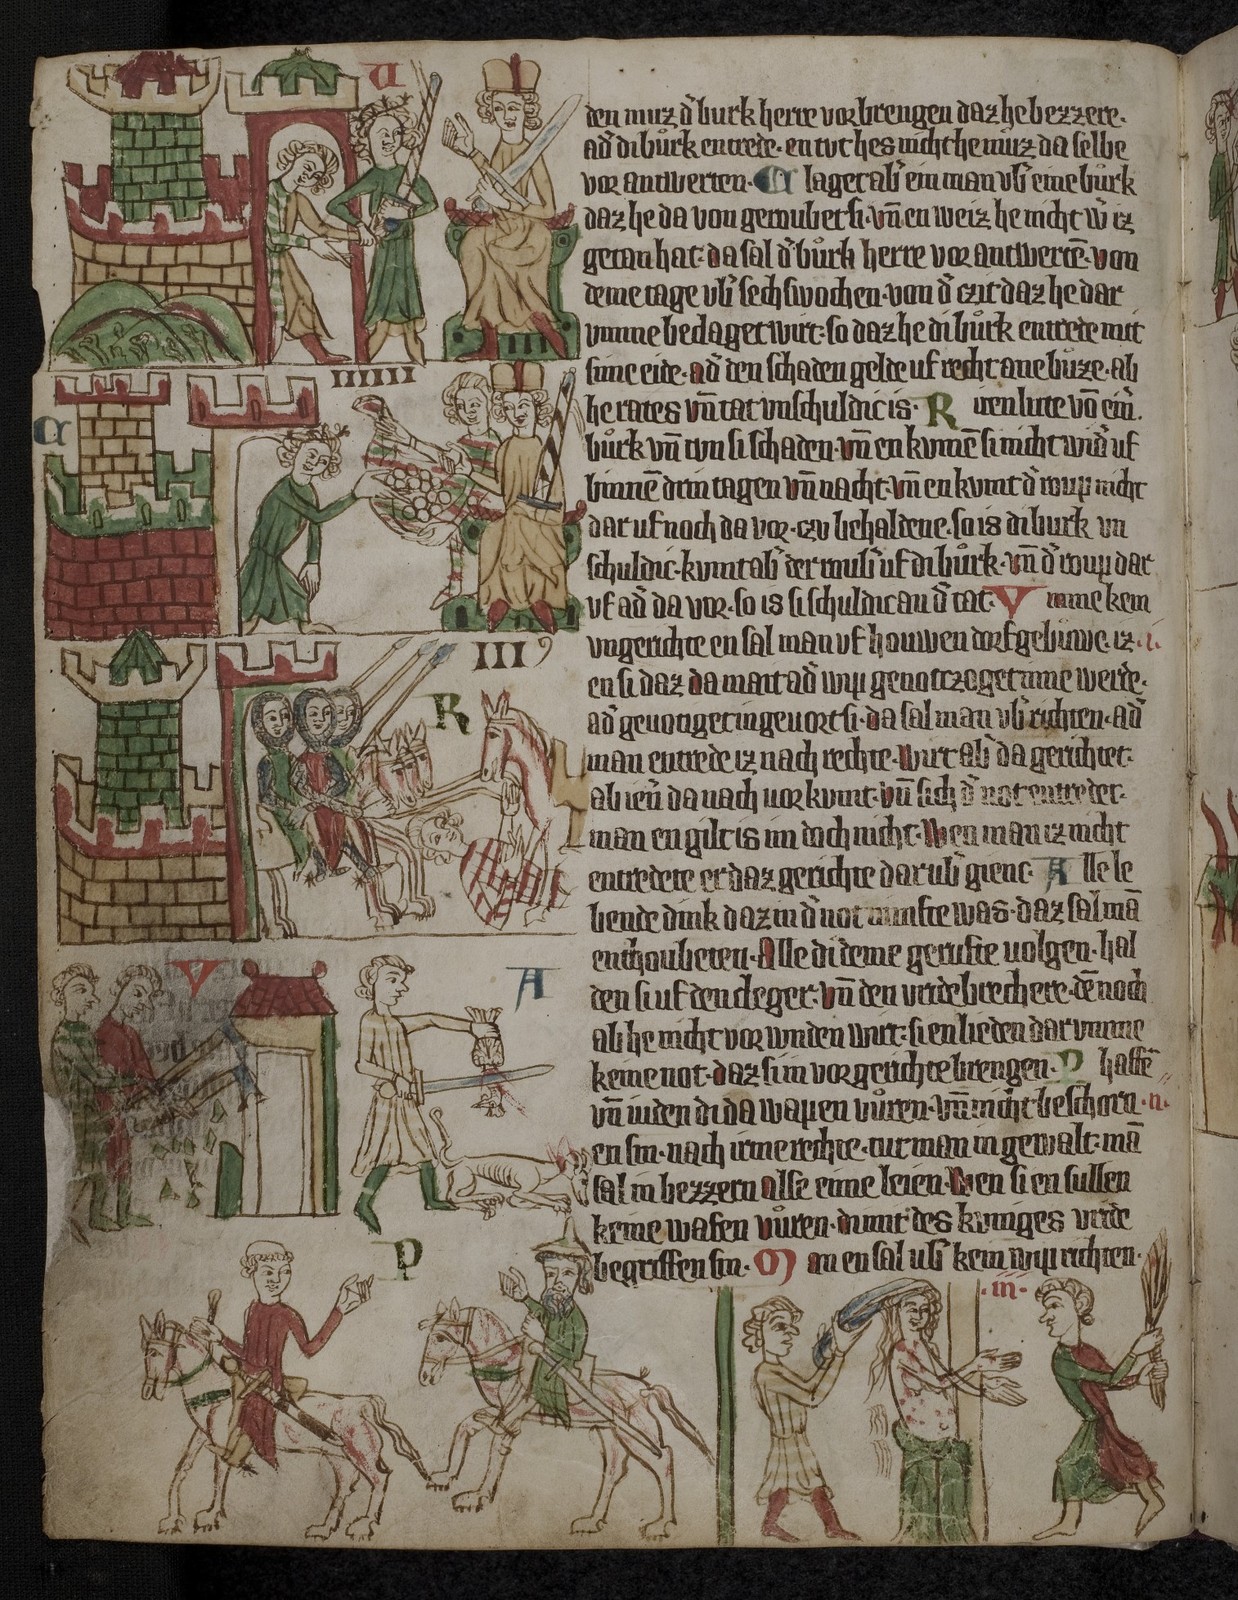 den muz d̄ burk herre vorbrengen daz he bezzere.
ad̄ di bůrk entrede. en tut hes nicht he můz da selbe
vor antwerten. C laget ab̄ ein man vb̄ eine bůrk
daz he da von geroubet si. vn̄ en weiz he nicht w̄ iz
getan hat. da sal d̄ bůrk herre vor antwertē. von
deme tage vb̄ sechs wochen. von d̄ czit daz he dar
vmme bedaget wirt. so daz he di bůrk entrede mit
sime eide. ad̄ den schaden gelde uf recht ane bůze. ab
he rates vn̄ tat vnschuldic is. R iten lute vō ein̄
bůrk vn̄ tun si schaden. vn̄ en kumē si nicht wid̄ uf
binnē drin tagen vn̄ nacht. vn̄ en kumt d̄ roup nicht
dar uf noch da vor. czu behaldene. so is di burk un
schuldic. kumt ab̄ der roub̄ uf di bůrk. vn̄ d̄ roup dar
uf ad̄ da vor. so is si schuldic an d̄ tat. V mme kein
vngerichte en sal man uf houwen dorf gebůwe. iz .i.
en si daz da mait ad̄ wip genotczoget inne werde.
ad̄ genotiget in gevort si. da sal man vb̄ richten. ad̄
man entrede iz nach rechte. wirt ab̄ da gerichtet.
ab ien̄ da nach vor kumt. vn̄ sich d̄ not entredet.
man en gilt is im doch nicht. Wen man iz nicht
entredete er daz gerichte dar ub̄ gienc. A lle le
bende dink daz in d̄ not numfte was. daz sal mā
enthoubeten. Alle di deme gerufte volgen. hal
den si uf den cleger. vn̄ den vridebrechere. dēnoch
ab he nicht vorwnden wirt. si en liden dar vmme
keine not. daz si in vor gerichte brengen. P haffē
vn̄ iuden di da wapen vůren. vn̄ nicht beschorn .ii.
en sin. nach irme rechte. tut man in gewalt. mā
sal in bezzern alse eime leien. Wen si en sullen
keine wafen vůren. di mit des kuniges vride
begriffen sin. M an en sal ub̄ kein wip richten.
.iii.
IIIIII
C
III
R
V
A
P